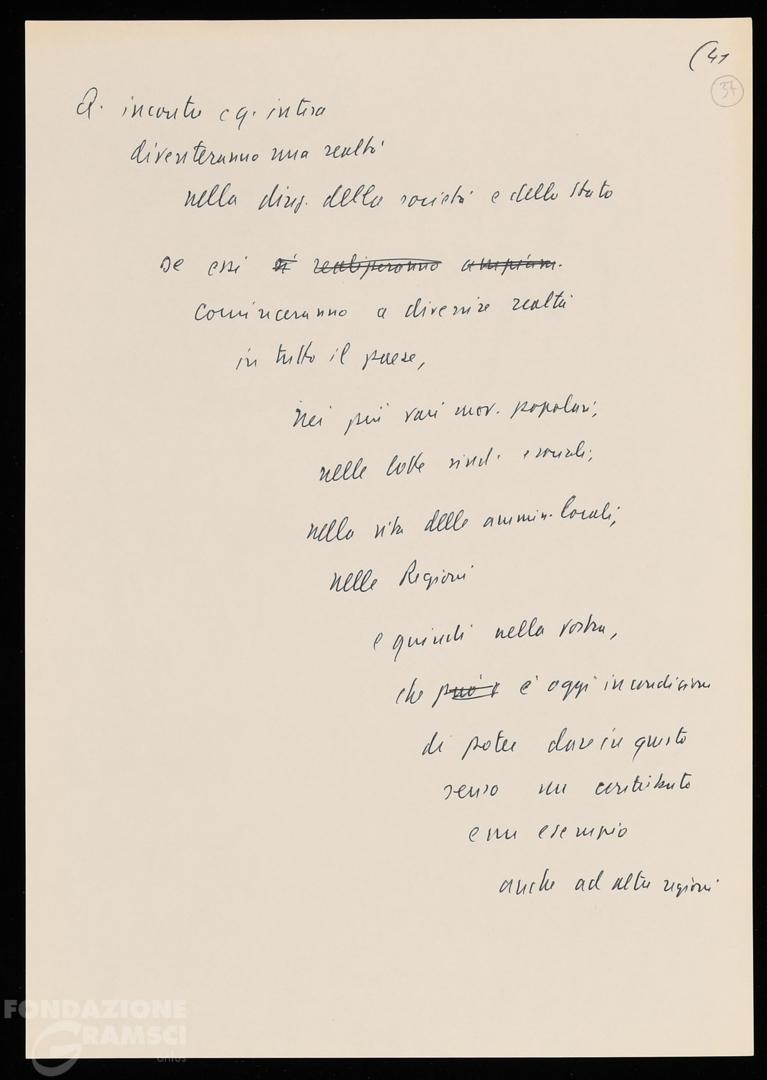 (41
37
Q. incontro e q. intesa
diventeranno una realtà
nella direz. della società e dello Stato
se essi si realizzeranno ampiam.
cominceranno a divenire realtà
in tutto il paese,
nei più vari mov. popolari;
nelle lotte sind. e sociali;
nella vita delle ammin. locali;
nelle Regioni
e quindi nella vostra,
che può è oggi in condizione
di poter dare in questo
senso un contributo
e un esempio
anche ad altre regioni
FONDAZIONE
GRAMSCI
onlus